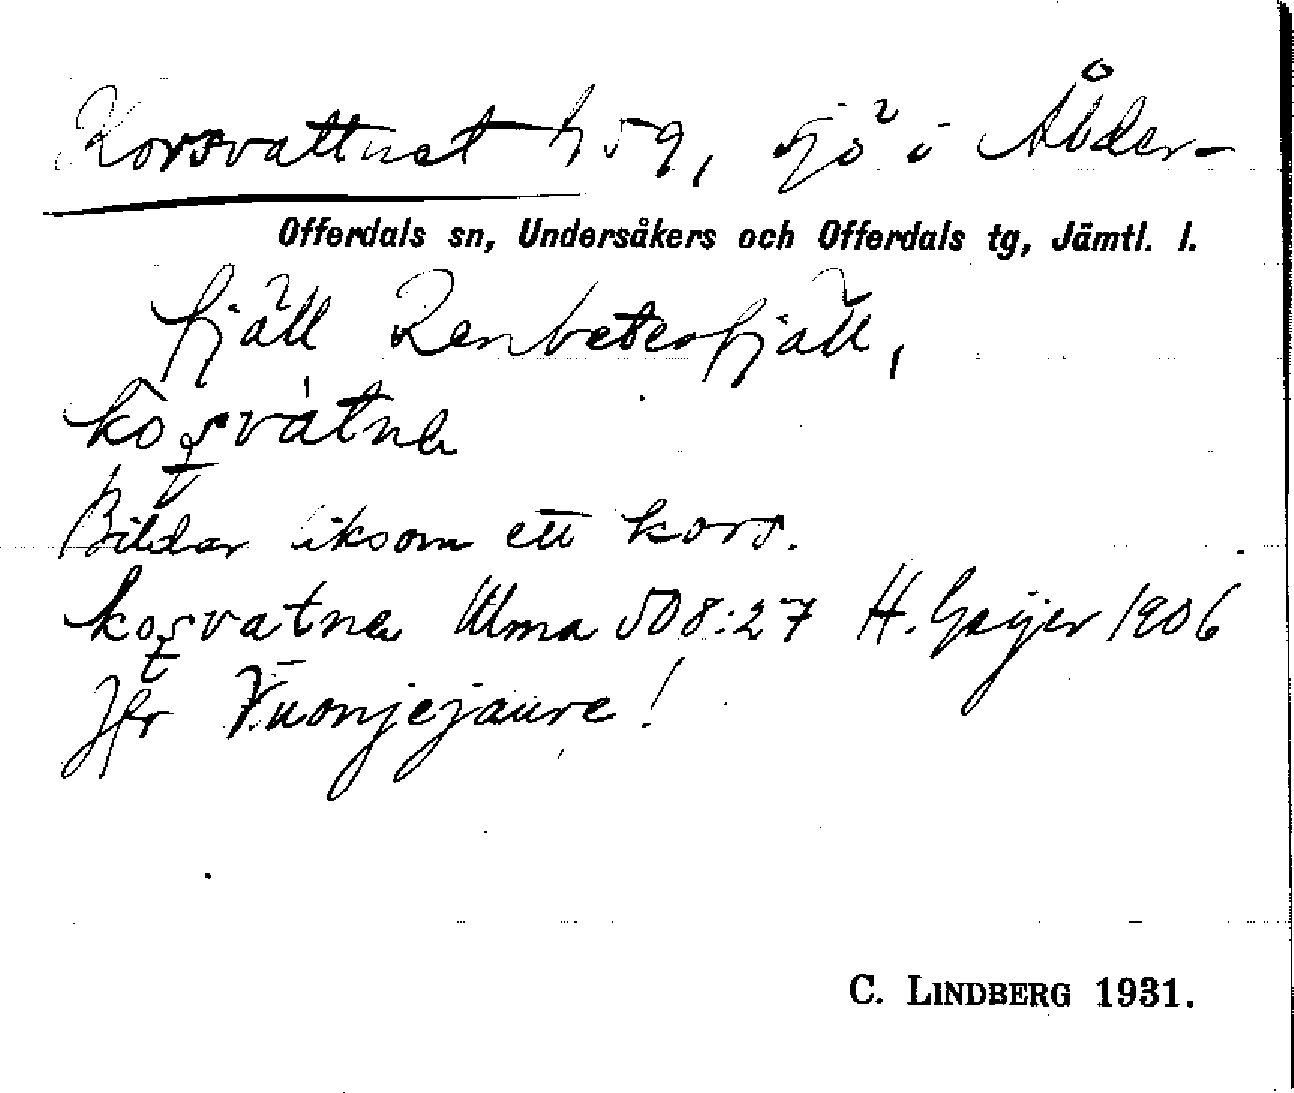 Korsvattnet h 59, sjö i Åkder-
Offerdals sn, Undersåkers och Offerdals tg, Jämtl. l.
fjäll Renbetesfjäll,
Bildar liksom ett kors.
Ulma 508:27 H. Geijer 1906
Jfr Vuonjejaure!
C. LINDBERG 1931.